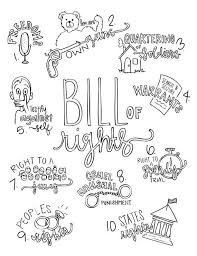 1. FREEDOMS
2. own guns
3. QUARTERING
of Soldiers
4. WARRANTS
BILL OF
rights
5. testify
against
self
6. RIGHT TO
Trial
7. RIGHT TO A
jury
8. CRUEL
unusual
PUNISHMENT
9. PEOPLES
rights
10. STATES
rights